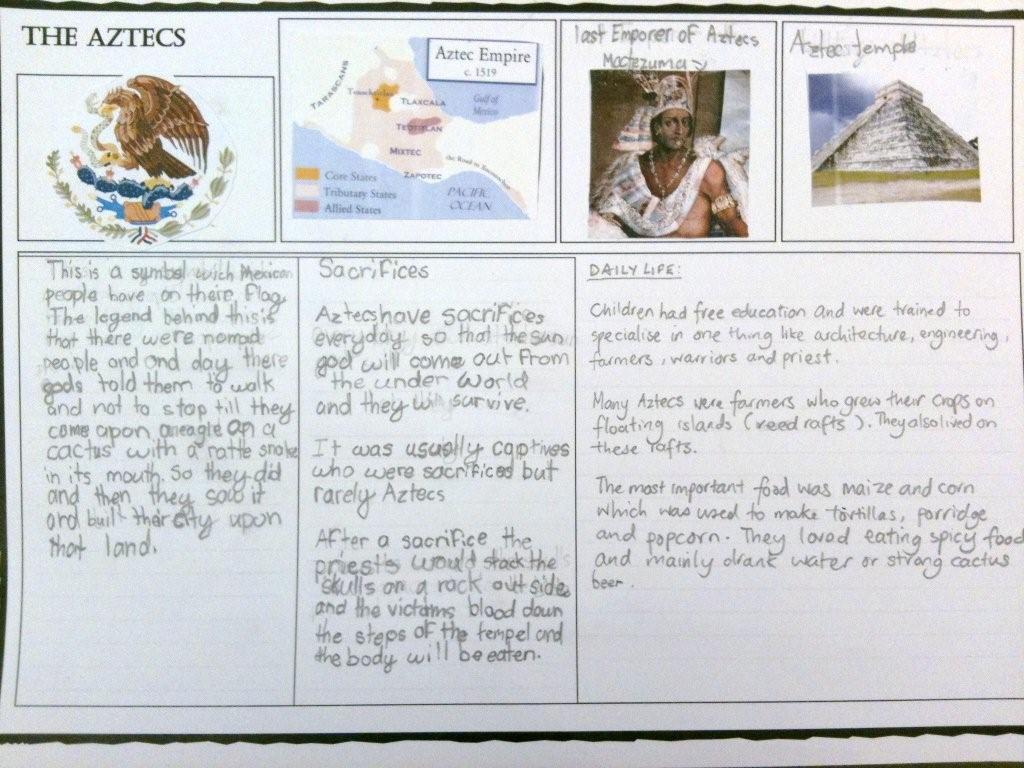 THE AZTECS
Aztec Empire
c. 1519
TARASCANS
Tenochtitlan
TLAXCALA
Gulf of
Mexico
TEOTITLAN
MIXTEC
the Road to Xoconochco
ZAPOTEC
Core States
Tributary States
Allied States
PACIFIC
OCEAN
last Emporer of Aztecs
Moctezuma
Aztec temple
This is a symbol wich Mexican
people have on their flag
The legend behind this is
that there were nomad
people and ond day there
gods told them to walk
and not to stop till they
come upon a neagle on a
cactus with a rattle snake
in its mouth. So they did
and then they saw it
and built thar city upon
that land.
Sacrifices
Aztecs have sacrifices
everyday so that the sun
god will come out from
the under world
and they will survive.
It was usually captives
who were sacrifices but
rarely Aztecs
After a sacrifice the
priests would stack the
skulls on a rock out side
and the victams blood down
the steps of the tempel and
the body will be eaten.
DAILY LIFE:
Children had free education and were trained to
specialise in one thing like architecture, engineering,
farmers, warriors and priest.
Many Aztecs were farmers who grew their crops on
floating islands (reed rafts). They also lived on
these rafts.
The most important food was maize and corn
which was used to make tortillas, porridge
and popcorn. They loved eating spicy food
and mainly drank water or strong cactus
beer.